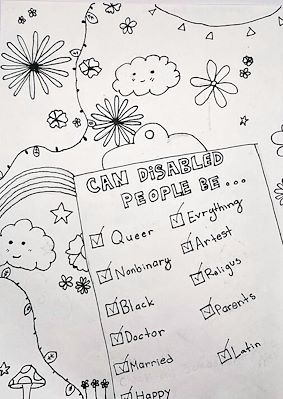 CAN DiSABLED
PEOPLE BE...
Queer
Nonbinary
Black
Doctor
Married
Happy
Evrything
Artest
Religus
Parents
Latin